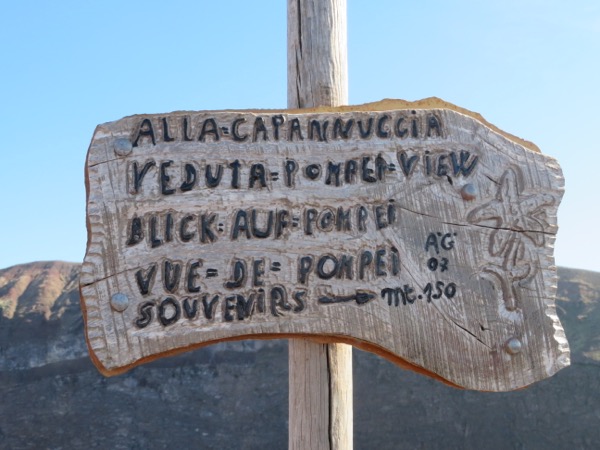 ALLA=CAPANNUCCIA
VEDUTA=POMPEI=VIEW
BLICK=AUF=POMPEI
VUE=DE=POMPEI
A*G
07
SOUVENIRS → mt.150